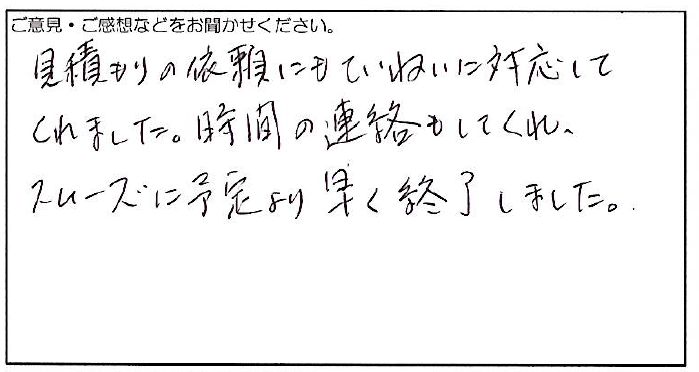 ご意見・ご感想などをお聞かせください。
見積もりの依頼にもていねいに対応して
くれました。時間の連絡もしてくれ、
スムーズに予定より早く終了しました。